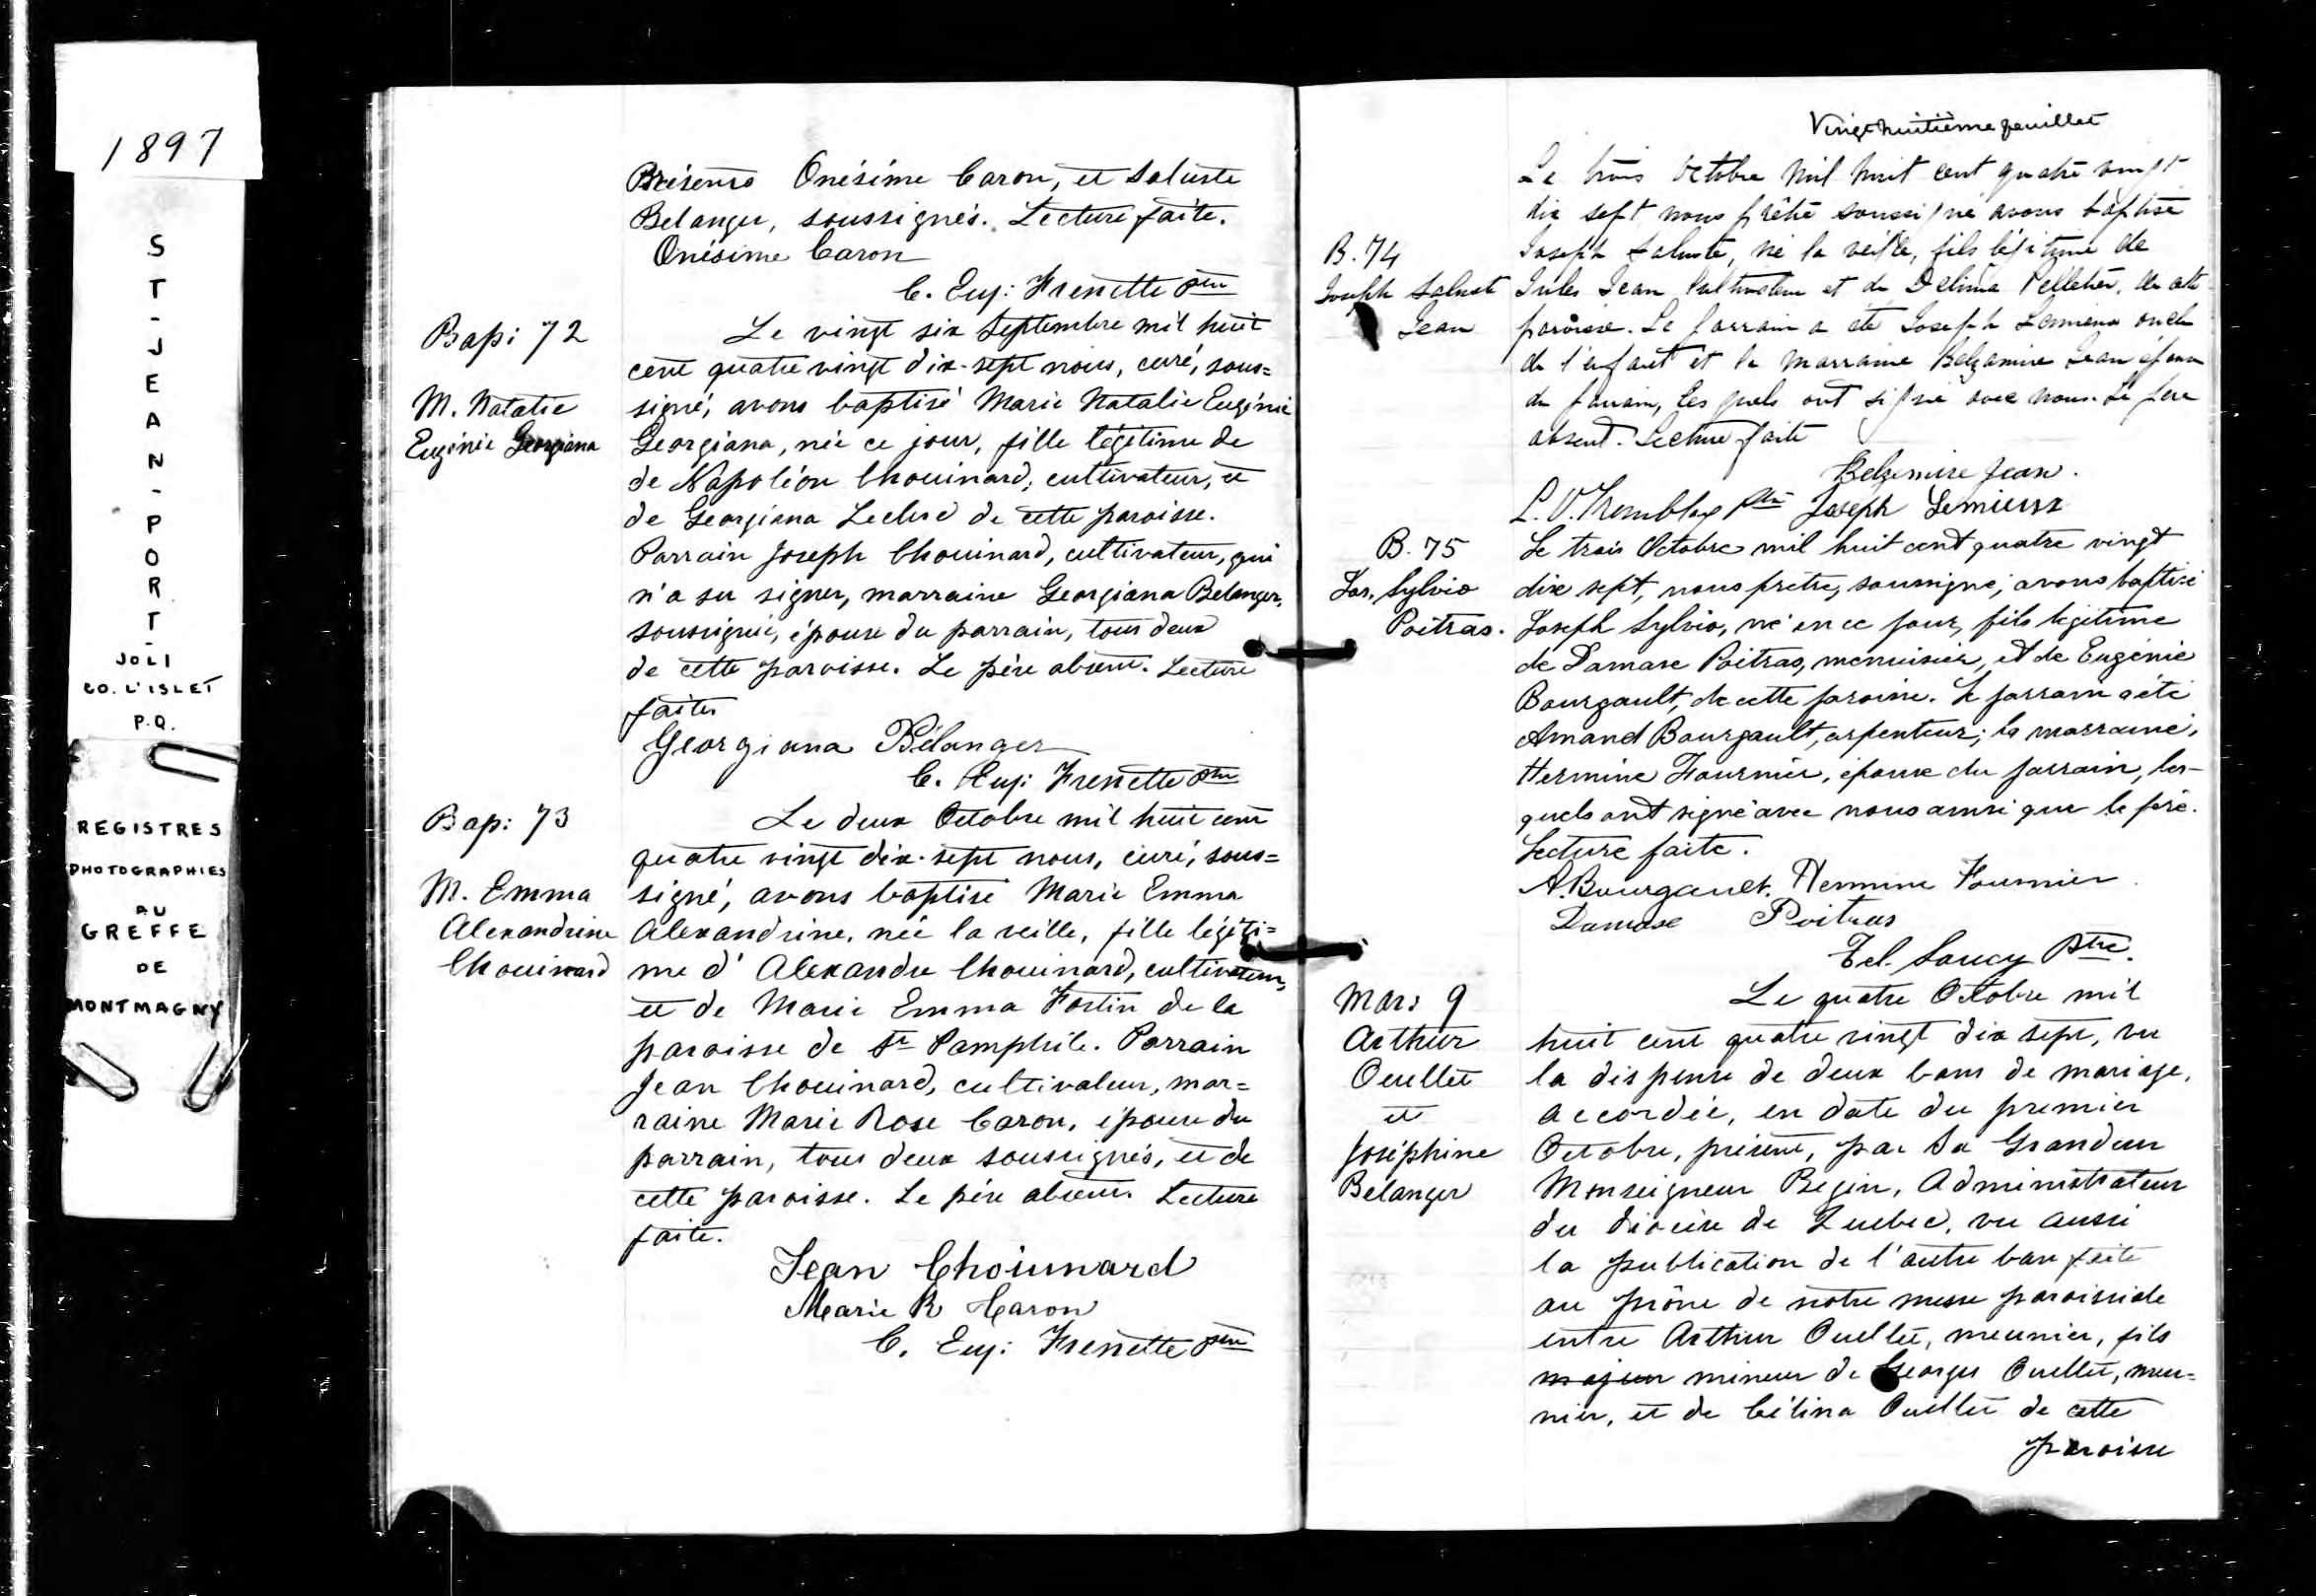 1897
ST-JEAN-PORT-
JOLI
CO. L'ISLET
P.Q.
REGISTRES
PHOTOGRAPHIES
AU
GREFFE
DE
MONTMAGNY
Présents Onésime Caron, et Saluste
Belanger, soussignés. Lecture faite.
Onésime Caron
C. Eug: Frenette ptre
Bap: 72
M. Natalie
Eugénie Georgiana
Le vingt six Septembre mil huit
cent quatre vingt dix-sept nous, curé, sous=
signé, avons baptisé Marie Natalie Eugénie
Georgiana, née ce jour, fille légitime de
de Napoléon Chouinard, cultivateur, et
de Georgiana Leclerc de cette paroisse.
Parrain Joseph Chouinard, cultivateur, qui
n'a su signer, marraine Georgiana Belanger,
soussignée, épouse du parrain, tous deux
de cette paroisse. Le père absent. Lecture
faite.
Georgiana Bélanger
C. Eug: Frenette ptre
Bap: 73
M. Emma
Alexandrine
Chouinard
Le deux Octobre mil huit cent
quatre vingt dix-sept nous, curé, sous=
signé, avons baptisé Marie Emma
Alexandrine, née la veille, fille légiti=
me d'Alexandre Chouinard, cultivateur,
et de Marie Emma Fortin de la
paroisse de St Pamphile. Parrain
Jean Chouinard, cultivateur, mar=
raine Marie Rose Caron, épouse du
parrain, tous deux soussignés, et de
cette paroisse. Le père absent. Lecture
faite.
Jean Choiunard
Marie R Caron
C. Eug: Frenette ptre
Vingt huitième feuillet
B. 74
Joseph Salust
Jean
Le trois Octobre mil huit cent quatre vingt
dix sept nous prêtre soussigné avons baptisé
Joseph Saluste, né la veille, fils légitime de
Jules Jean Cultivateur et de Delima Pelletier, de cette
paroisse. Le parrain a été Joseph Lemieux oncle
de l'enfant et la marraine Belzamire Jean épouse
du parrain, lesquels ont signé avec nous. Le père
absent. Lecture faite
Belzemire Jean.
L. O. Tremblay Ptre Joseph Lemieux
B. 75
Jos. Sylvio
Poitras.
Le trois Octobre mil huit cent quatre vingt
dix sept, nous prêtre, soussigné, avons baptisé
Joseph Sylvio, né en ce jour, fils légitime
de Damase Poitras, menuisier, et de Eugénie
Bourgault, de cette paroisse. Le parrain a été
Amand Bourgault, arpenteur; la marraine,
Hermine Fournier, épouse du parrain, les-
quels ont signé avec nous ainsi que le père.
Lecture faite.
A. Bourgault. Hermine Fournier
Damase Poitras
Tel. Soucy Ptre.
Mar: 9
Arthur
Ouellet
et
Joséphine
Bélanger
Le quatre Octobre mil
huit cent quatre vingt dix sept, vu
la dispense de deux bans de mariage,
accordée, en date du premier
Octobre, présent, par Sa Grandeur
Monseigneur Begin, Administrateur
du diocèse de Quebec, vu aussi
la publication de l'autre ban faite
au prône de notre messe paroissiale
entre Arthur Ouellet, meunier, fils
majeur mineur de Georges Ouellet, meu=
nier, et de Célina Ouellet de cette
paroisse